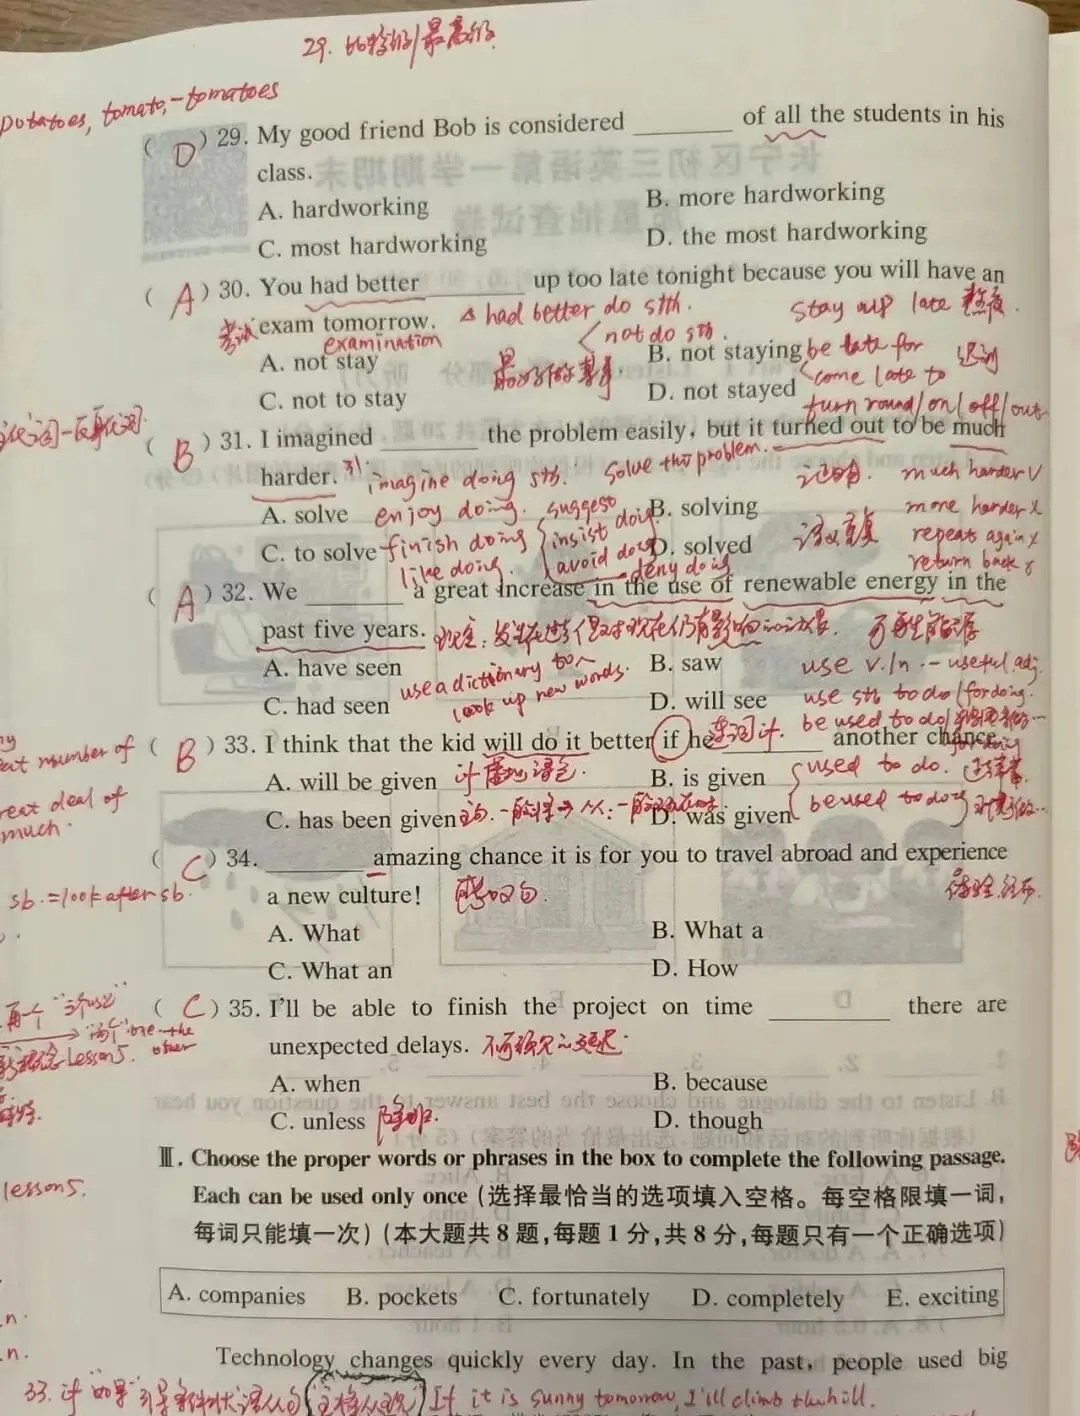 29. 比较级/最高级
potatoes, tomato,-tomatoes
( D ) 29. My good friend Bob is considered ________ of all the students in his
class.
A. hardworking B. more hardworking
C. most hardworking D. the most hardworking
( A ) 30. You had better ________ up too late tonight because you will have an
exam tomorrow.
考试 examination
△ had better do sth.
not do sth.
最好做某事
stay up late 熬夜.
A. not stay B. not staying
C. not to stay D. not stayed
be late for
come late to
迟到
turn round/on/off/out
( B ) 31. I imagined ________ the problem easily, but it turned out to be much
harder.
imagine doing sth. solve the problem.
证明. much harder √
A. solve B. solving
enjoy doing. suggest
more harder x
C. to solve D. solved
finish doing insist doing
avoid doing
like doing. deny doing
语义重复 repeat again x
return back x
( A ) 32. We ________ a great increase in the use of renewable energy in the
past five years.
可再生能源
A. have seen B. saw
C. had seen D. will see
use a dictionary to
look up new words.
use v./n. - useful adj.
use sth to do/for doing.
be used to do
( B ) 33. I think that the kid will do it better if he ________ another chance.
A. will be given B. is given
C. has been given D. was given
used to do.
be used to doing
number of
great deal of
much.
( C ) 34. ________ amazing chance it is for you to travel abroad and experience
a new culture!
感叹句.
体验.经历.
sb.=look after sb.
A. What B. What a
C. What an D. How
( C ) 35. I'll be able to finish the project on time ________ there are
unexpected delays.
不可预见的延迟.
one-the
other
新概念 Lesson5.
A. when B. because
C. unless D. though
除非.
Ⅲ. Choose the proper words or phrases in the box to complete the following passage.
Each can be used only once (选择最恰当的选项填入空格。每空格限填一词,
每词只能填一次) (本大题共 8 题,每题 1 分,共 8 分,每题只有一个正确选项)
lesson5.
A. companies B. pockets C. fortunately D. completely E. exciting
Technology changes quickly every day. In the past, people used big
33. if "如果" 引导条件状语从句 (主将从现) If it is sunny tomorrow, I'll climb the hill.